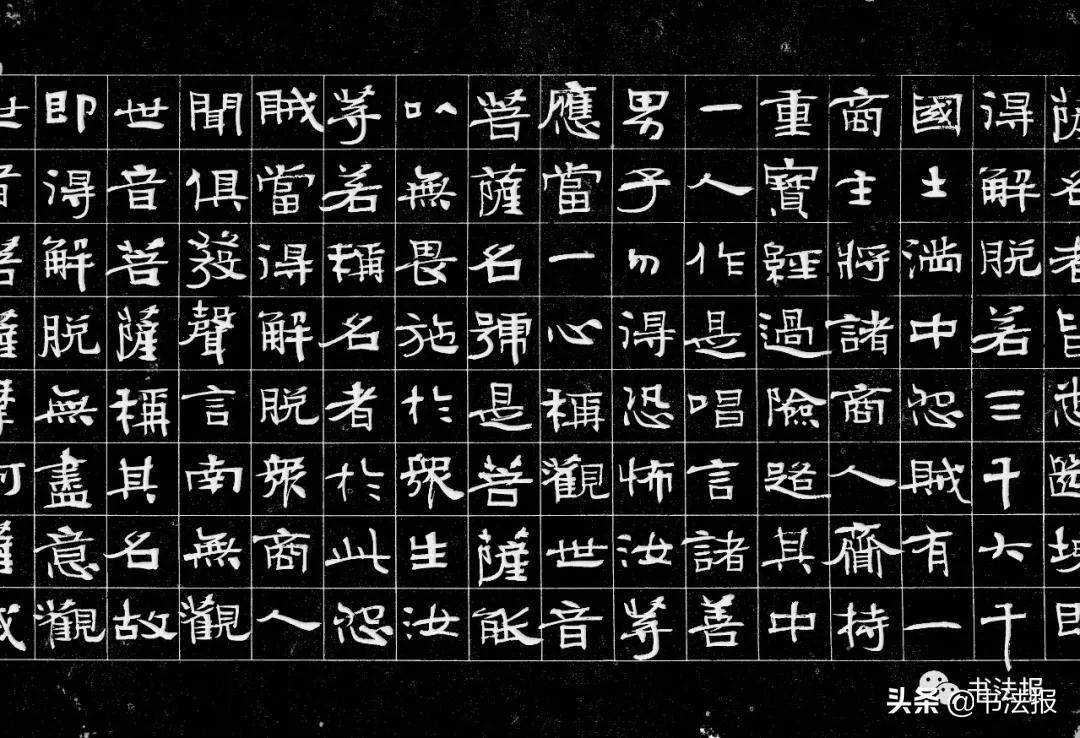 薩名者皆悉斷壞即
得解脫若三千大千
國土滿中怨賊有一
商主將諸商人齎持
重寶經過險路其中
一人作是唱言諸善
男子勿得恐怖汝等
應當一心稱觀世音
菩薩名號是菩薩能
以無畏施於眾生汝
等若稱名者於此怨
賊當得解脫眾商人
聞俱發聲言南無觀
世音菩薩稱其名故
即得解脫無盡意觀
世音菩薩摩訶薩威
书法报
头条 @书法报